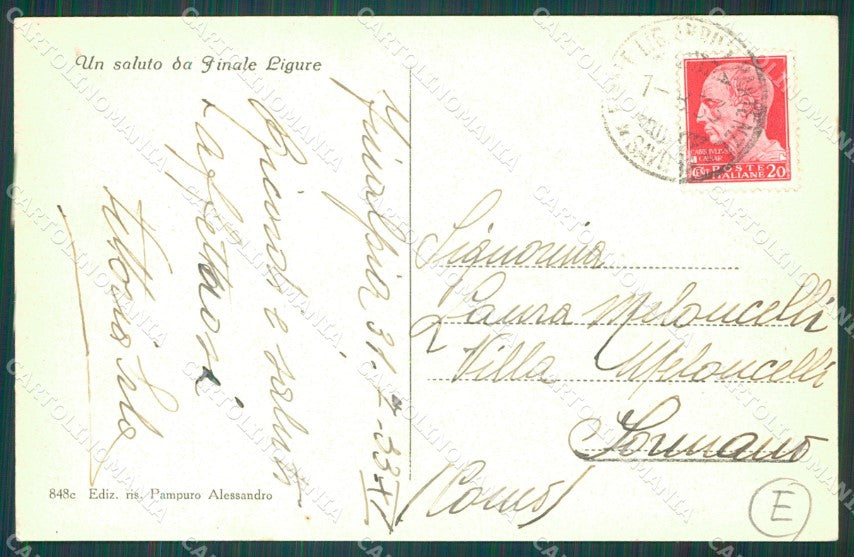 Un saluto da Finale Ligure
Finalpia 31.7.33 XI
Ricordi e saluti
affettuosi
848c Ediz. ris. Pampuro Alessandro
POSTE
ITALIANE 20
Signorina
Laura Meloncelli
Villa Meloncelli
Sormano
(Como)
E
CARTOLINOMANIA